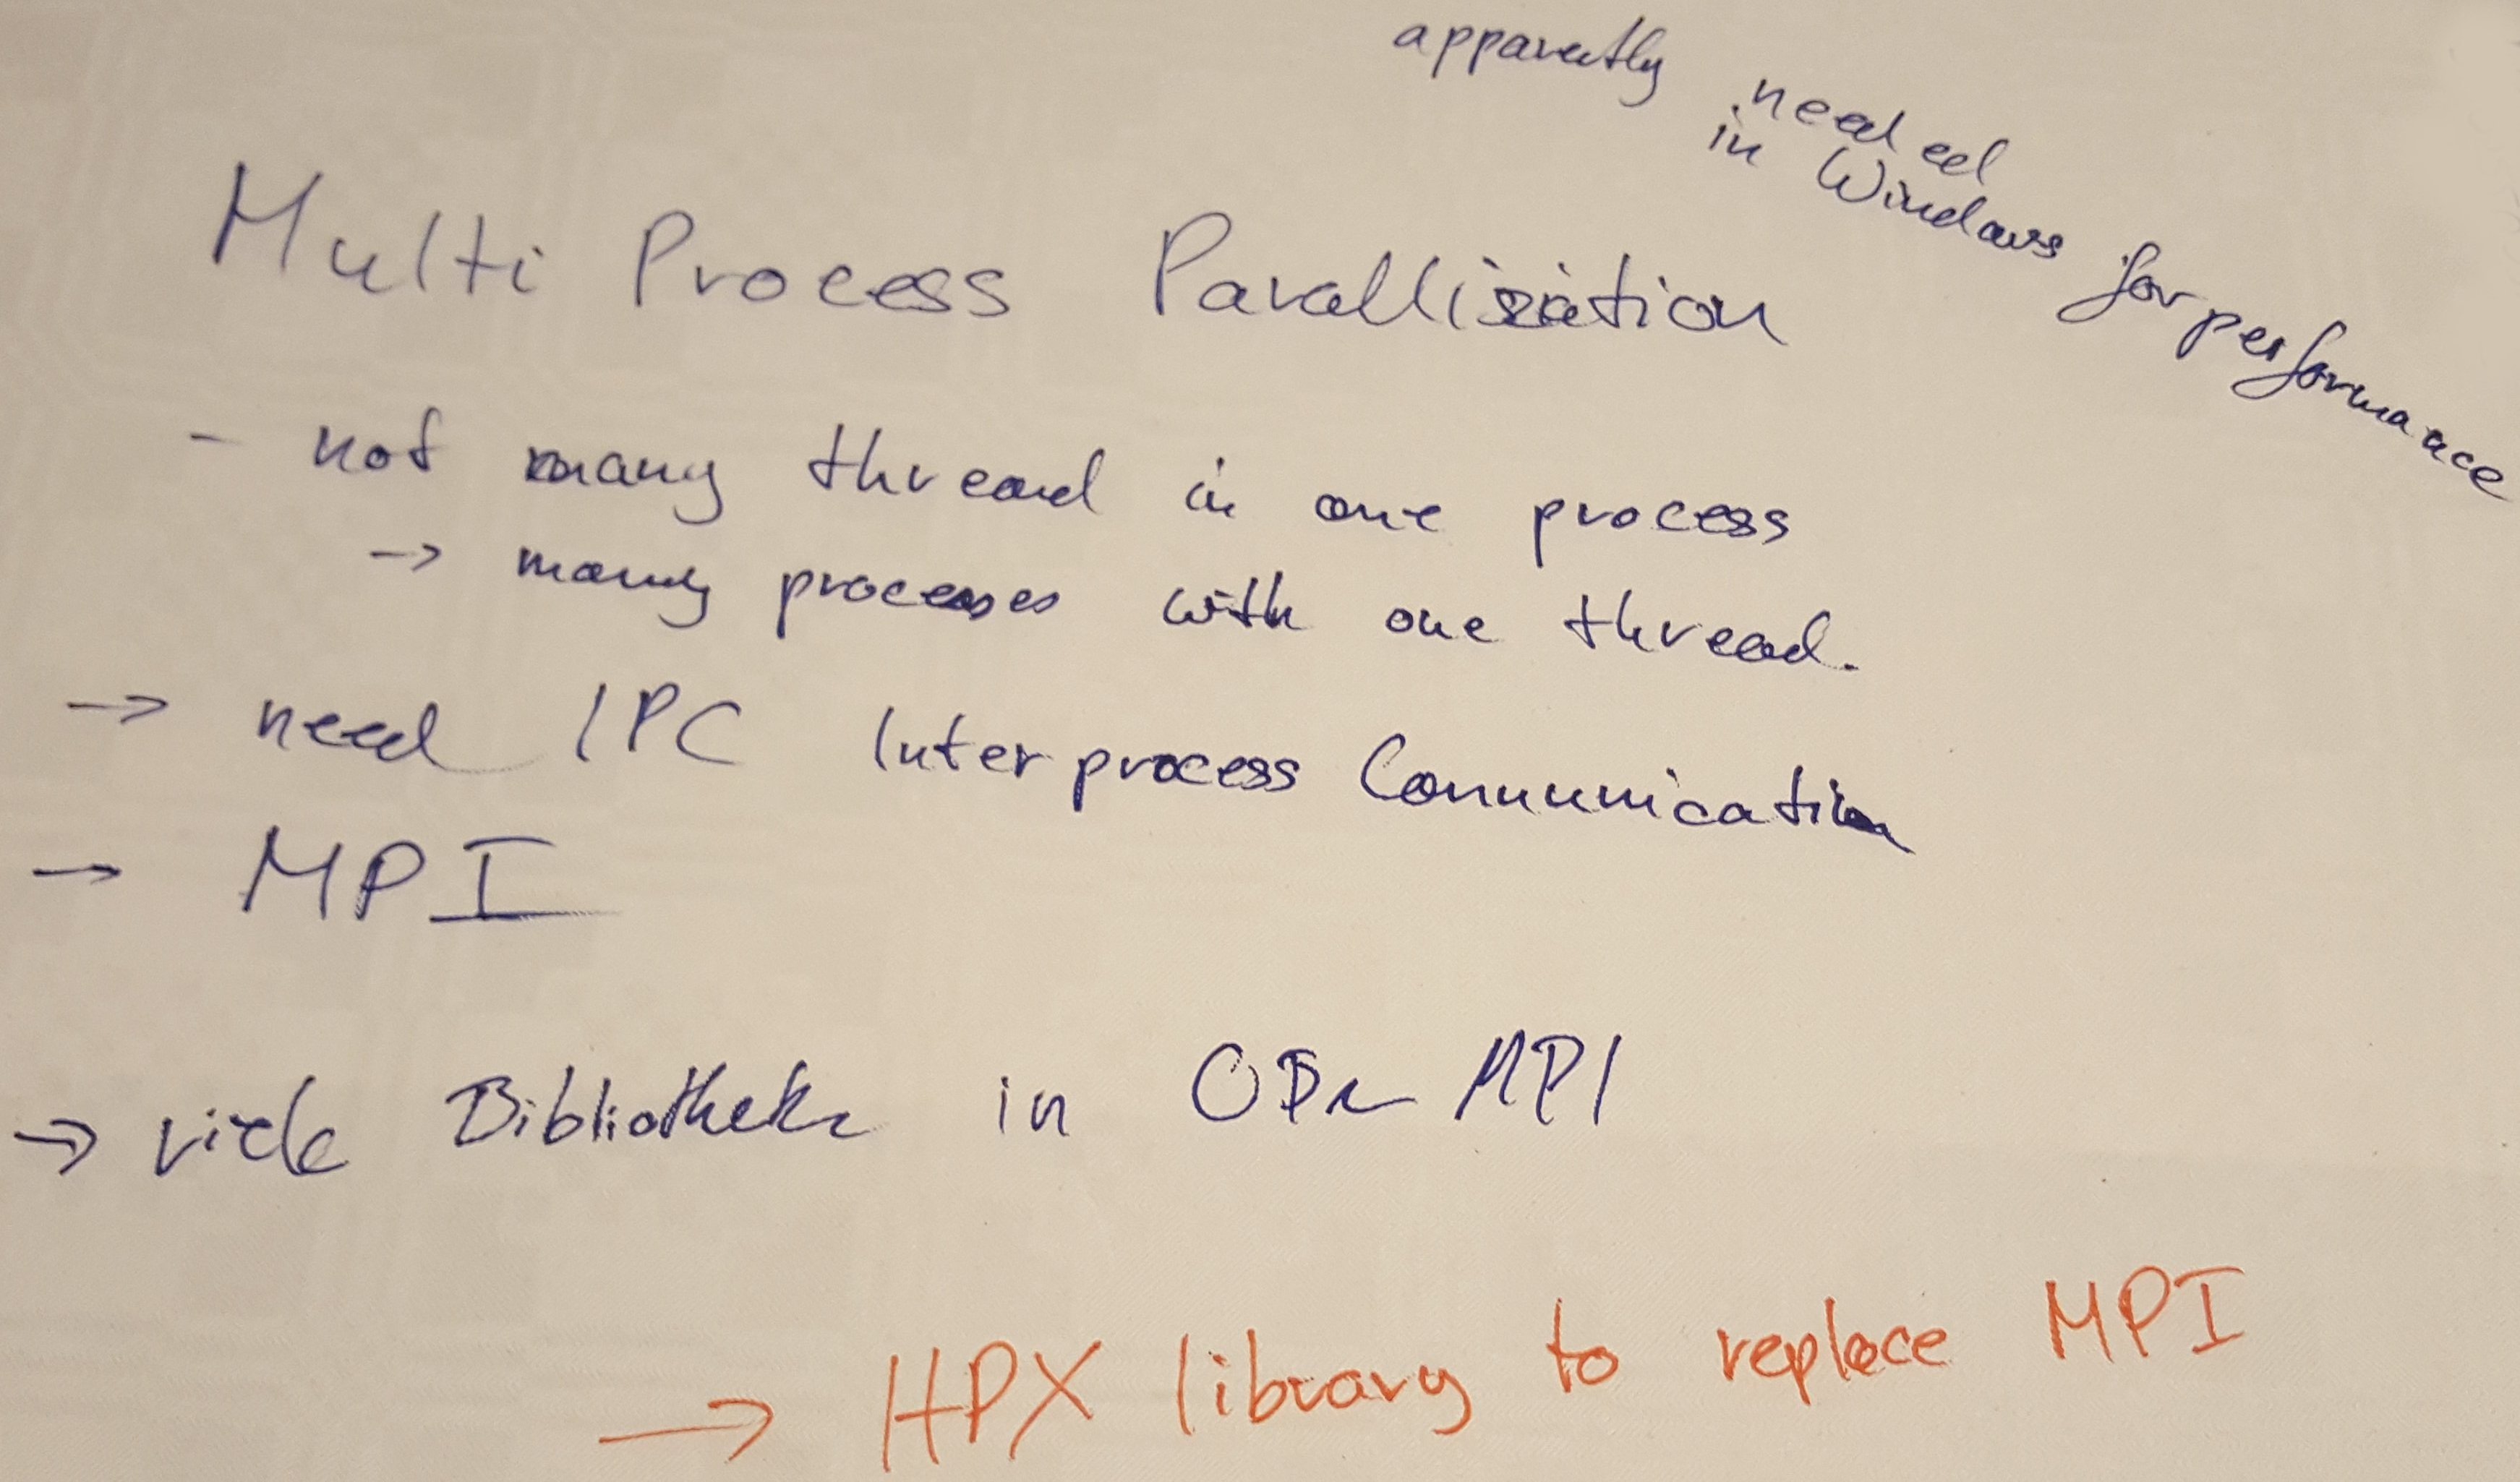 apparently needed
in Windows for performance
Multi Process Parallisiation
- not many thread in one process
-> many processes with one thread.
-> need IPC Interprocess Communication
-> MPI
-> viele Bibliotheke in MPI
-> HPX library to replace MPI